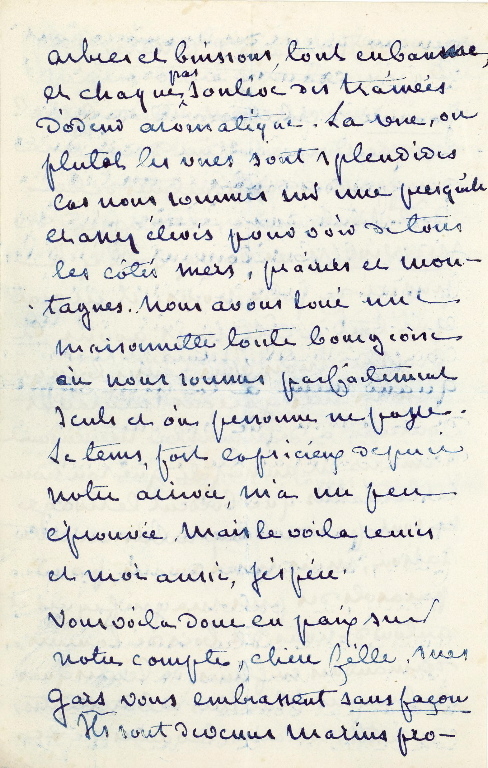 arbres et buissons, tout embaume,
et chaque pas soulève des traînées
d'odeur aromatique. La vue, ou
plutôt les vues sont splendides
car nous sommes sur une presqu'île
et assez élevés pour voir de tous
les côtés mers, prairies et mon-
tagnes. Nous avons loué une
maisonnette toute bourgeoise
où nous sommes parfaitement
seuls et où personne ne passe.
Le tems, fort capricieux depuis
notre arrivée, m'a un peu
éprouvée. Mais le voilà remis
et moi aussi, j'espère.
Vous voilà donc en paix sur
notre compte, chère fille. Mes
gars vous embrassent sans façon
Ils sont devenus Marius pro-